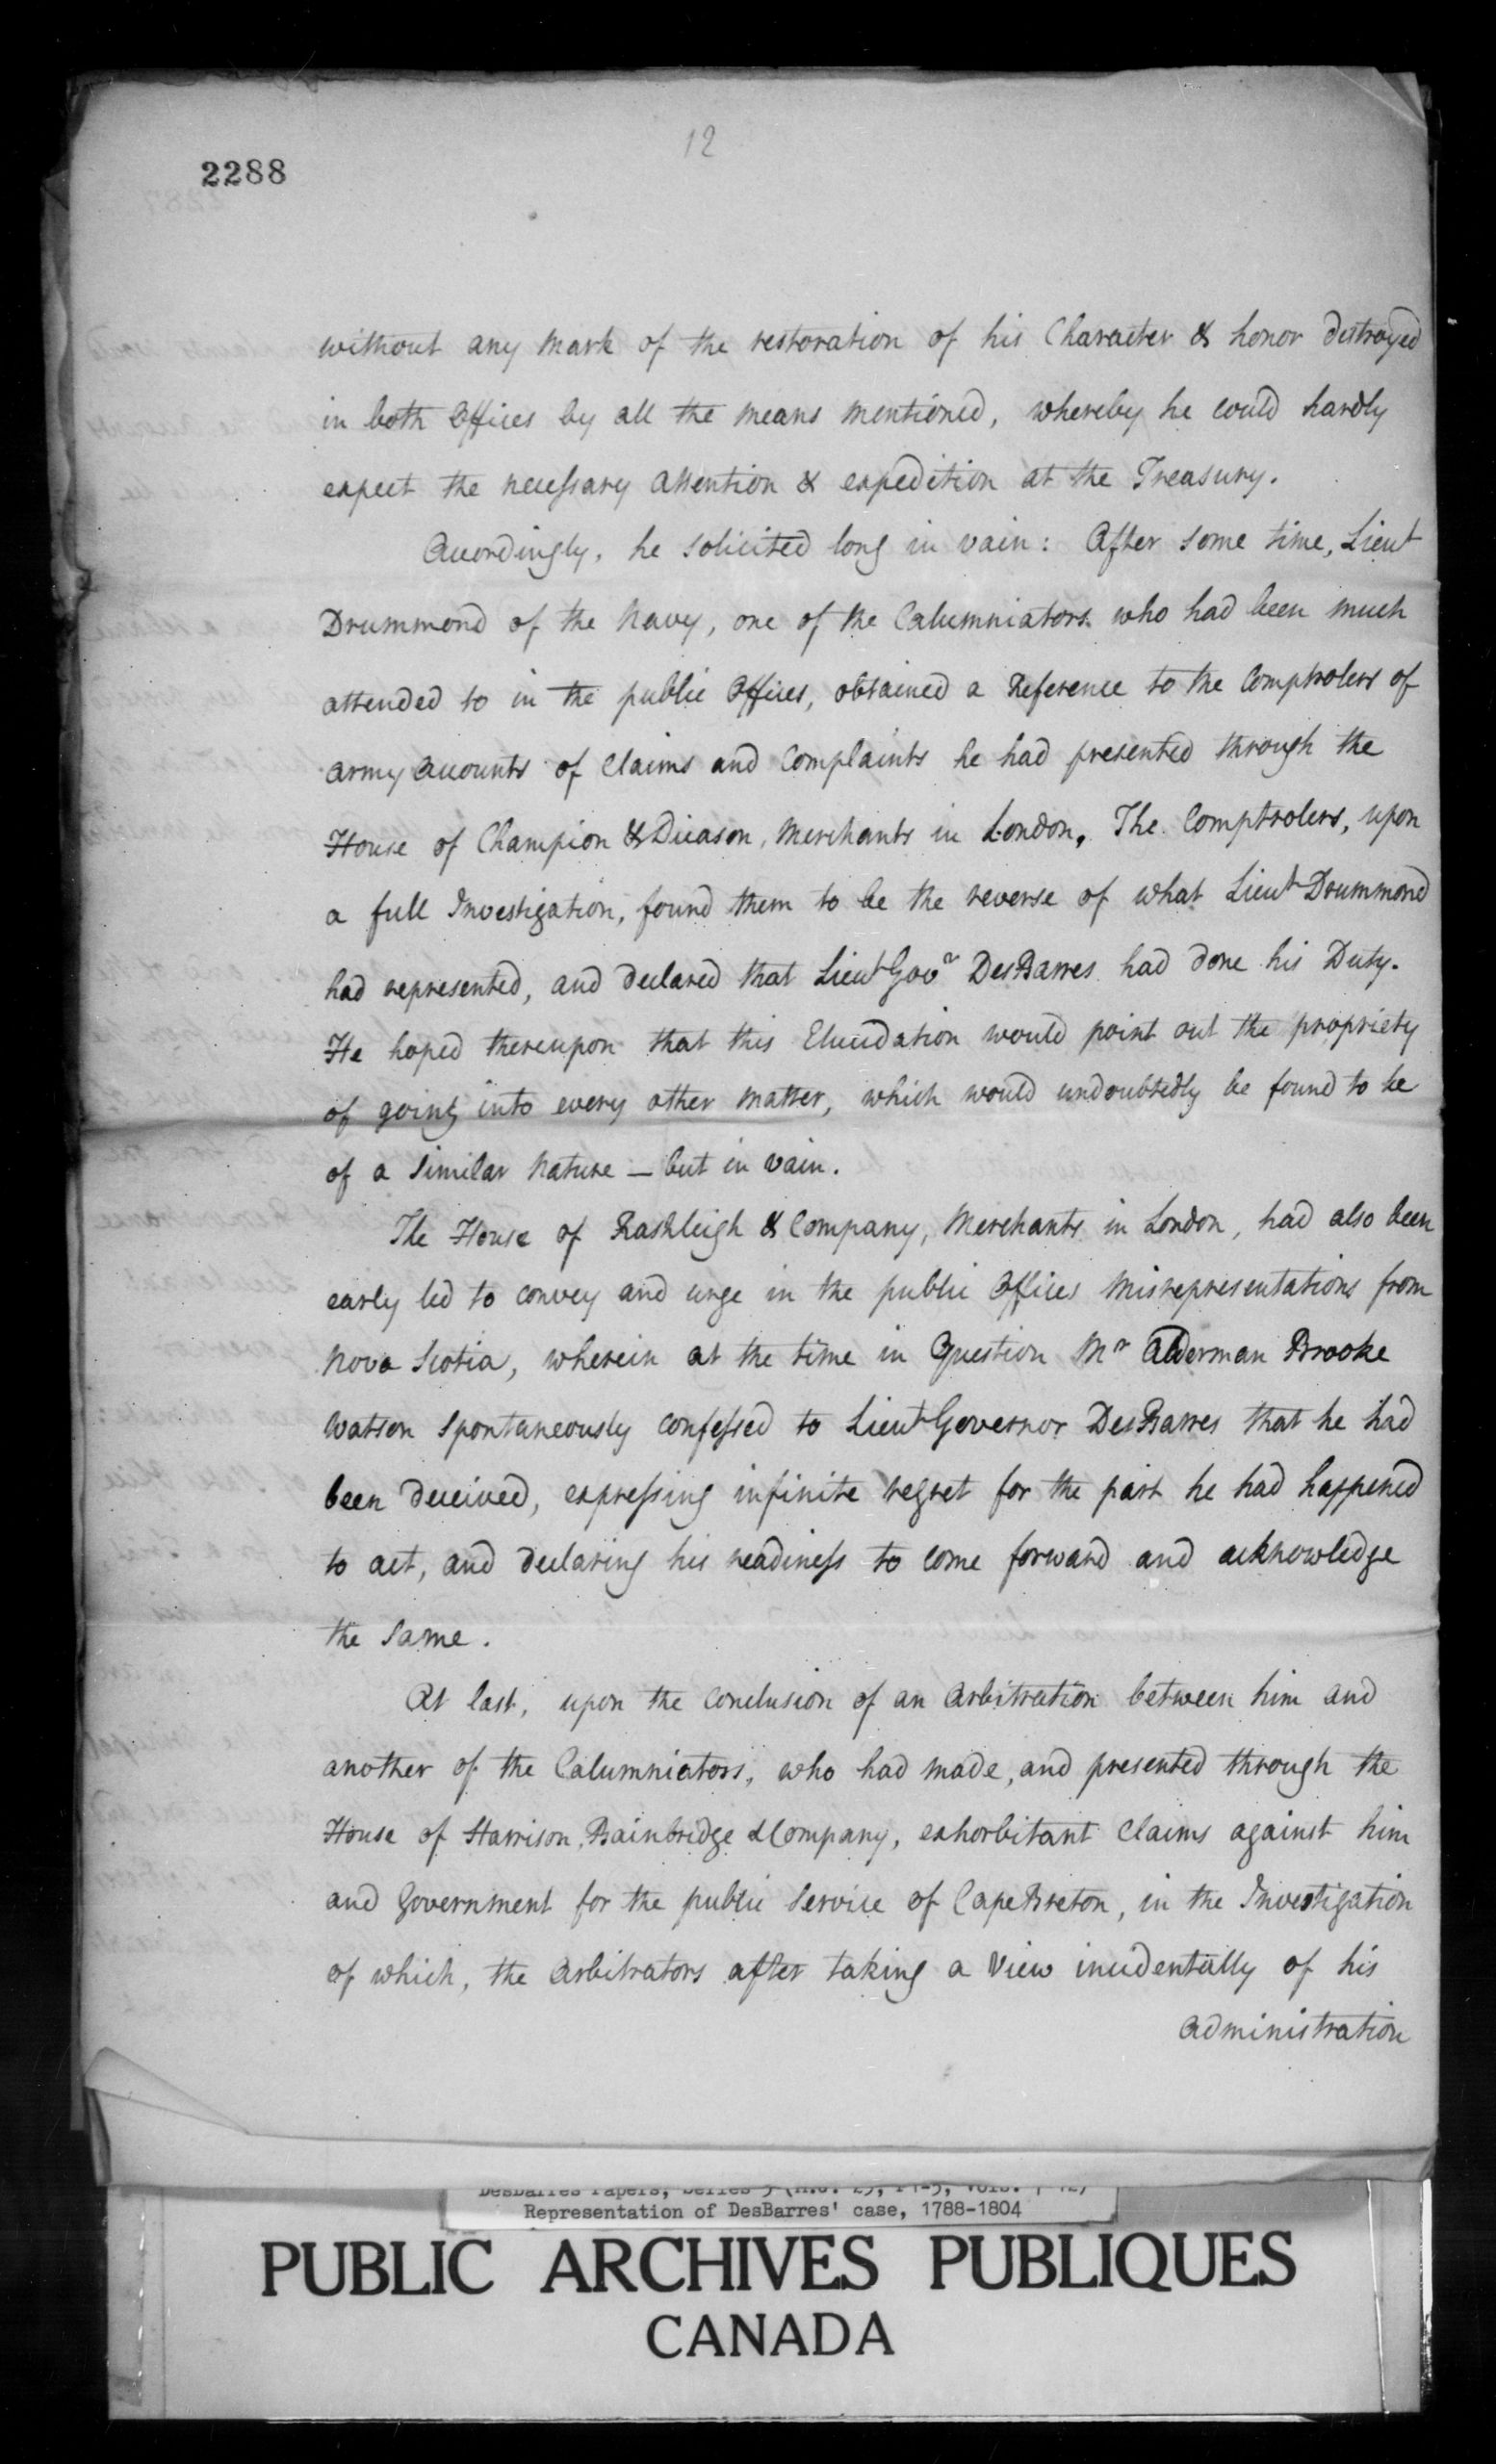 12
2288
without any Mark of the restoration of his Character & honor destroyed
in both Offices by all the Means Mentioned, whereby he could hardly
expect the necessary Attention & expedition at the Treasury.
Accordingly, he solicited long in vain: After some time, Lieut
Drummond of the Navy, one of the Calumniators who had been much
attended to in the public Offices, obtained a Reference to the Comptrolers of
Army Accounts of Claims and Complaints he had presented through the
House of Champion & Dicason, Merchants in London. The Comptrolers, upon
a full Investigation, found them to be the reverse of what Lieut Drummond
had represented, and declared that Lieut Govr DesBarres had done his Duty.
He hoped thereupon that this Elucidation would point out the propriety
of going into every other Matter, which would undoubtedly be found to be
of a Similar Nature — but in vain.
The House of Rashleigh & Company, Merchants in London, had also been
early led to convey and urge in the public Offices Misrepresentations from
Nova Scotia, wherein at the time in Question Mr Alderman Brooke
Watson Spontaneously confessed to Lieut Governor DesBarres that he had
been deceived, expressing infinite regret for the part he had happened
to act, and declaring his readiness to come forward and acknowledge
the Same.
At last, upon the Conclusion of an Arbitration between him and
another of the Calumniators, who had made, and presented through the
House of Harrison, Bainbridge & Company, exhorbitant Claims against him
and Government for the public Service of Cape Breton, in the Investigation
of which, the Arbitrators after taking a View incidentally of his
Administration
DesBarres Papers, Series 5
Representation of DesBarres' case, 1788-1804
PUBLIC ARCHIVES PUBLIQUES
CANADA